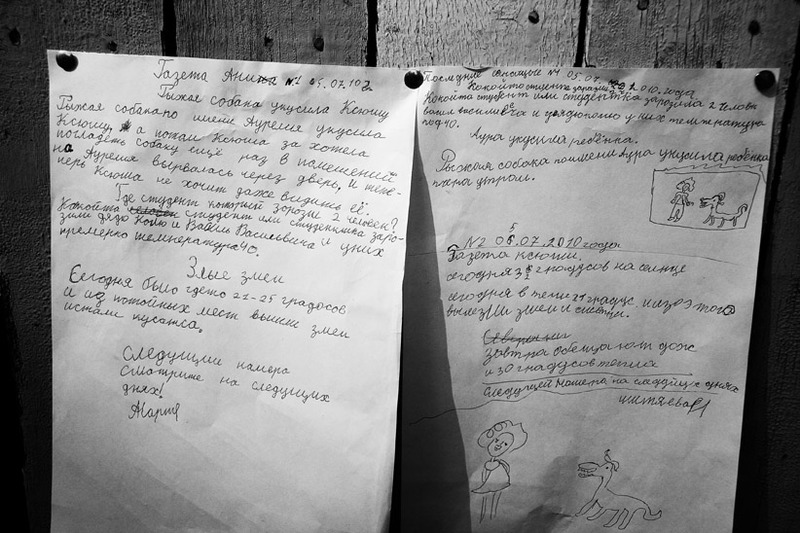 Газета №1 05.07.10
Рыжая собака укусила Ксюшу
Рыжая собакапо имени Аурелия укусила
Ксюшу, а потом Ксюша за хотела
погладеть собаку ещё раз в помещений
на Аурелия вырвалась через дверь. И тепе-
перь Ксюша не хочит даже видить её.
Где студент который зорозил 2 человек?
Какойта студент или студентка заро-
зили дядю Колю и Васильевича и у них
температура 40.
Злые змеи
Сегодня было гдето 22-25 градосов
и из потойных мест вышли змеи
истали кусатса.
Следущии намера
смотрите на следущих
днях!
Мария
Последние №1 05.07. 2010.года
Какойто студент зарозил
Какойта студент или студентка зарозила 2 человек
и у них температура
под 40.
Аура укусила ребёнка.
Рыжая собака поимени Аура укусила ребёнка
утром.
5
№2 06.07.2010 года
Газета ксюши.
сегодня 32 градусов на солнце
сегодня в тени 21 градус. и изза этого
вылезли змеи и
завтра обещают дож
и 30 градусов тепла
следущей намера на следущих днях